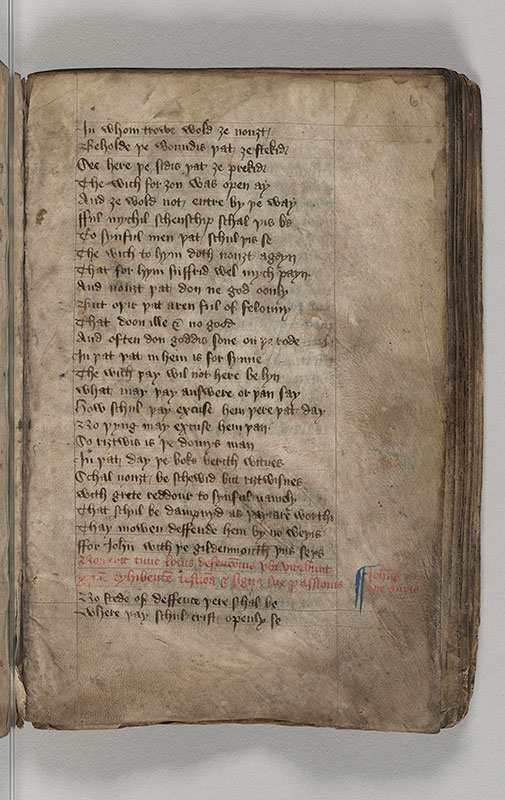 61
In whom trowe wold ȝe nouȝt
Beholde þe woundis þat ȝe stekid
See here þe sidis þat ȝe prekid
The wich for ȝou was open ay
And ȝe wold not entre by þe way
fful mychil schenschip schal þis be
To synful men þat schul þis se
The wich to hym doth nouȝt ageyn
That for hym suffrid wel mych payn
And nouȝt þat don ne god oonly
But oþir þat aren ful of felonny
That doon ille & no good
And often don goddis sone on þe rode
In þat þat in hem is for synne
The wich þay wil not here be lyn
What may þay answere or þan say
How schul þay excuse hem þere þat day
No þyng may excuse hem þan
So riȝtwis is þe domys man
In þat day þe boks berith witnes
Schal nouȝt be schewid but riȝtwisnes
With grete reddour to synful namely
That schul be dampnyd as þay are worthi
Thay mowen deffende hem by no weyis
ffor John with þe gildenmouth þus seys
No erit tunc locus defencionis vbi videbunt
xpm exhibentem testimonia & signa sue passionis
Johns
No stede of deffence þere schal be
Where þay schul crist openly se